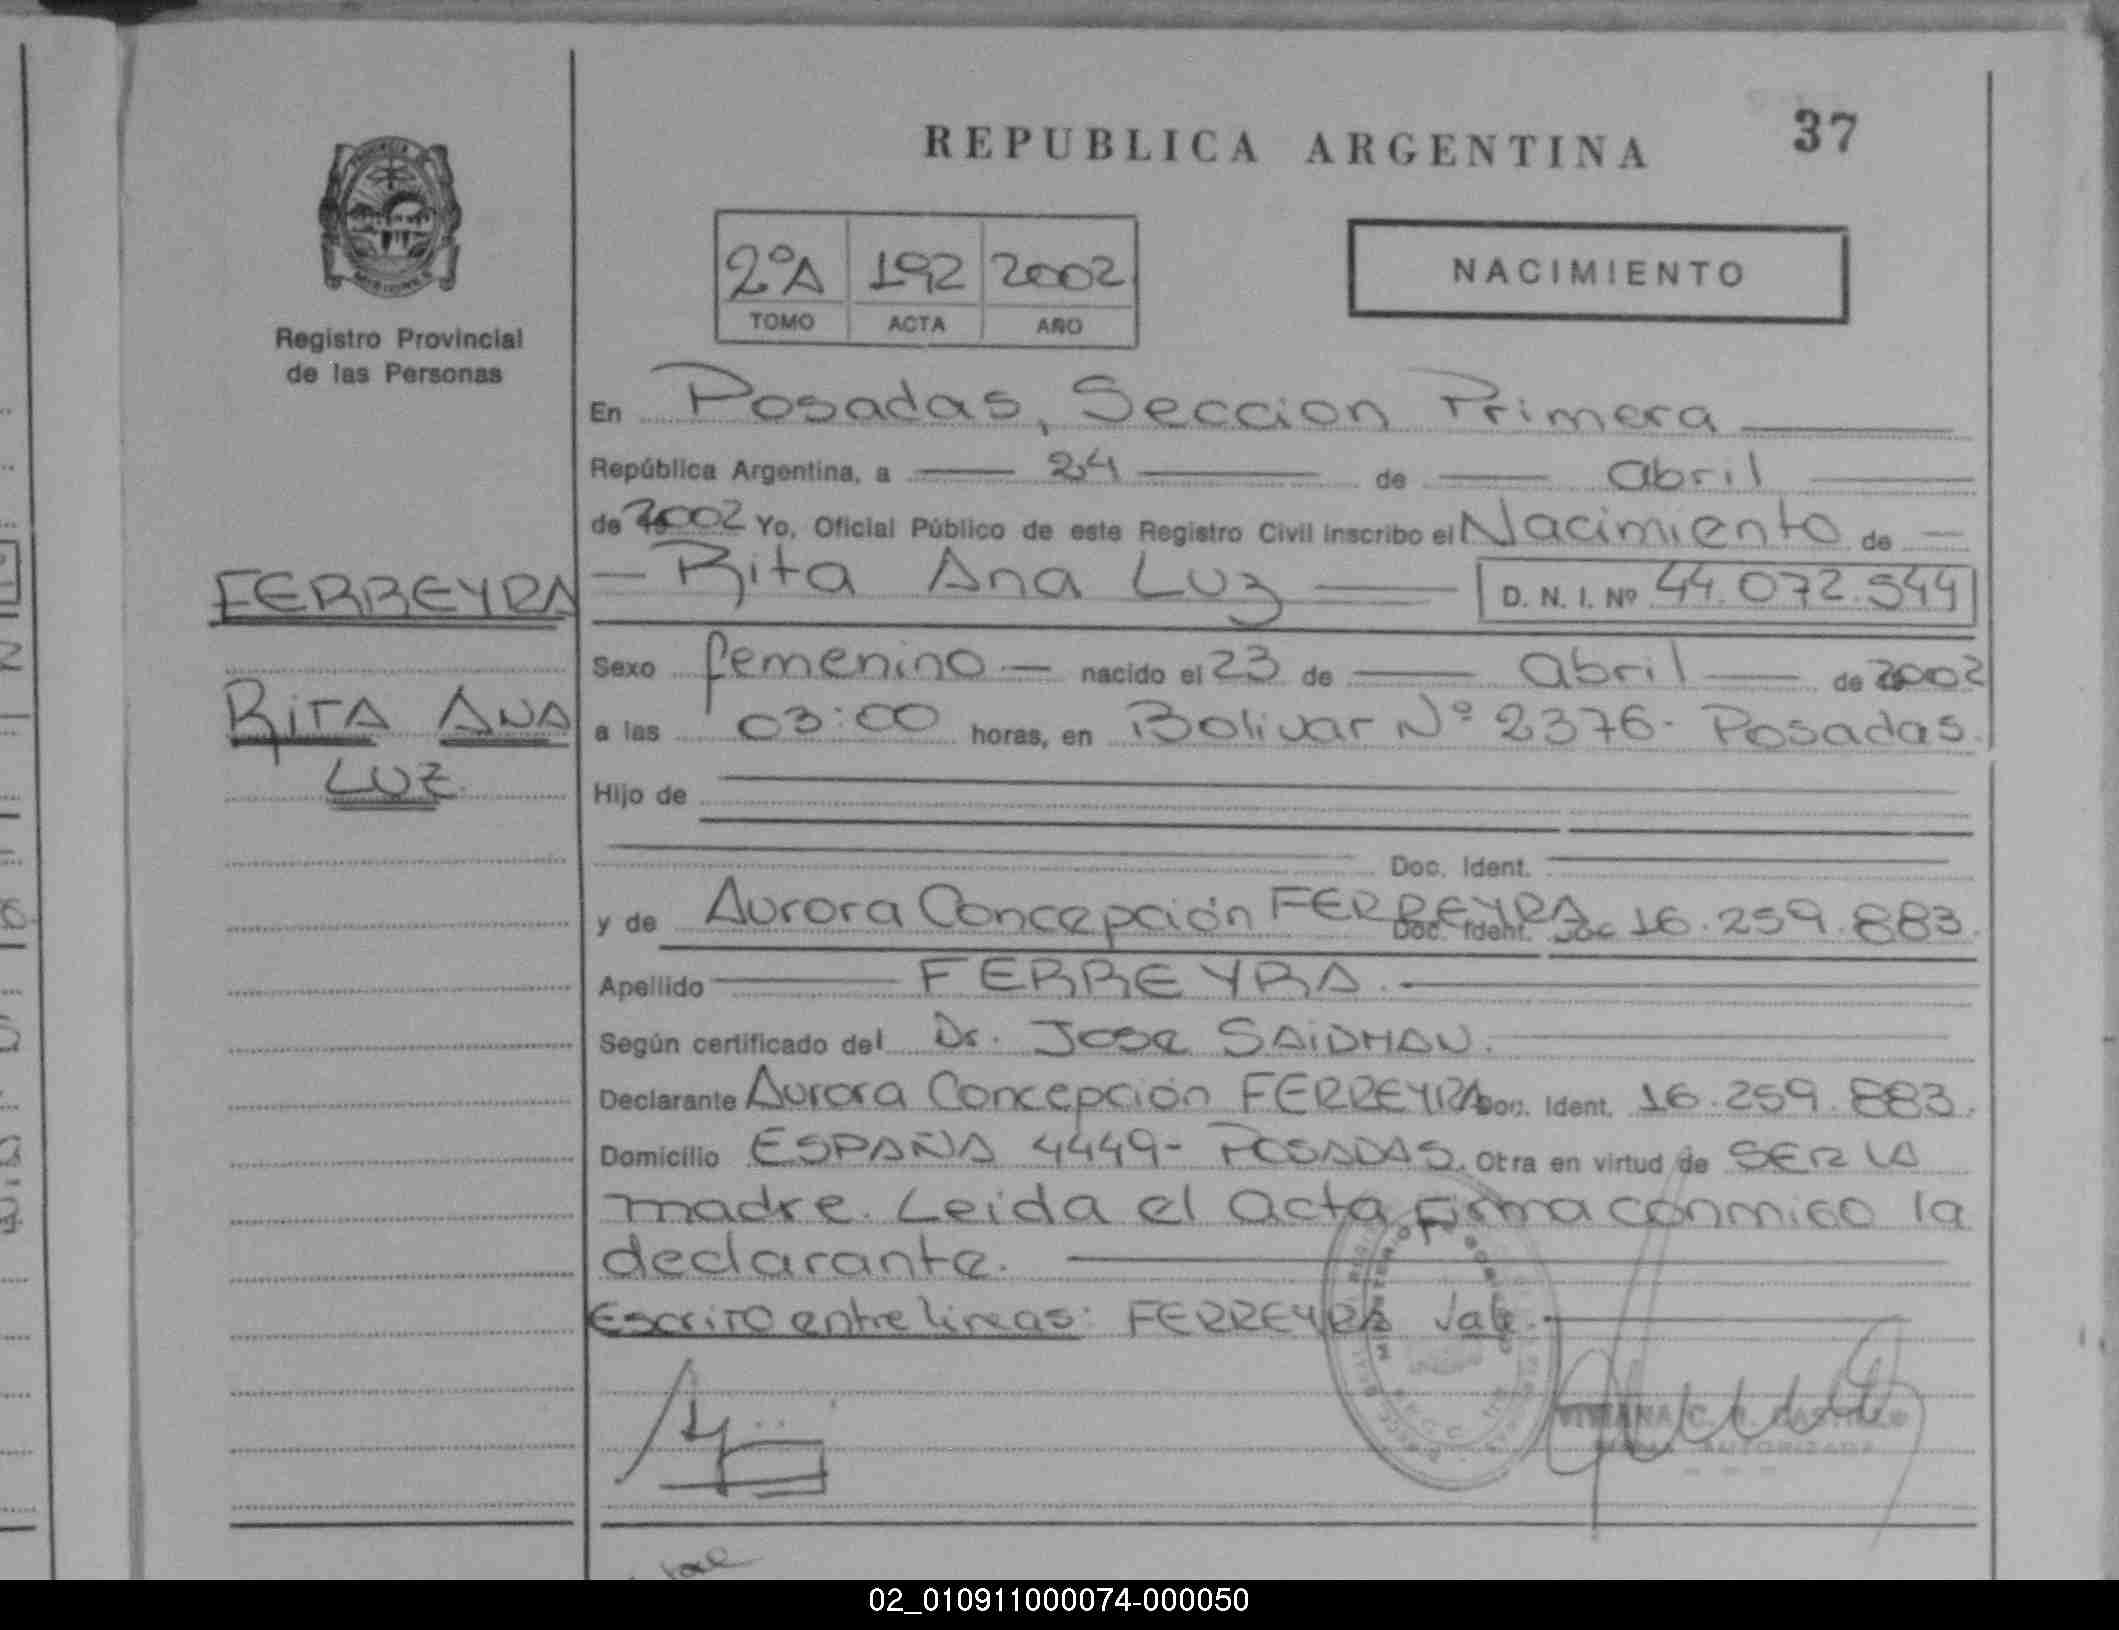 REPUBLICA ARGENTINA 37
2ºA 192 2002
TOMO ACTA AÑO
NACIMIENTO
Registro Provincial
de las Personas
FERREYRA
RITA ANA
LUZ.
En Posadas, Seccion Primera
República Argentina, a 24 de abril
de 2002 Yo, Oficial Público de este Registro Civil inscribo el Nacimiento de
Rita Ana Luz D. N. I. Nº 44.072.544
Sexo femenino nacido el 23 de abril de 2002
a las 03:00 horas, en Bolivar Nº 2376- Posadas.
Hijo de
Doc. Ident.
y de Aurora Concepción FERREYRA Doc. Ident. Doc 16.259.883.
Apellido FERREYRA.
Según certificado del Dr. Jose SAIDMAN.
Declarante Aurora Concepción FERREYRA Doc. Ident. 16.259.883.
Domicilio ESPAÑA 4449- POSADAS. Otra en virtud de SER LA
madre. Leida el acta firma conmigo la
declarante.
Escrito entre lineas: FERREYRA Vale.
VIVIANA C. CASTILLO
AUTORIZADA
vale
02_010911000074-000050